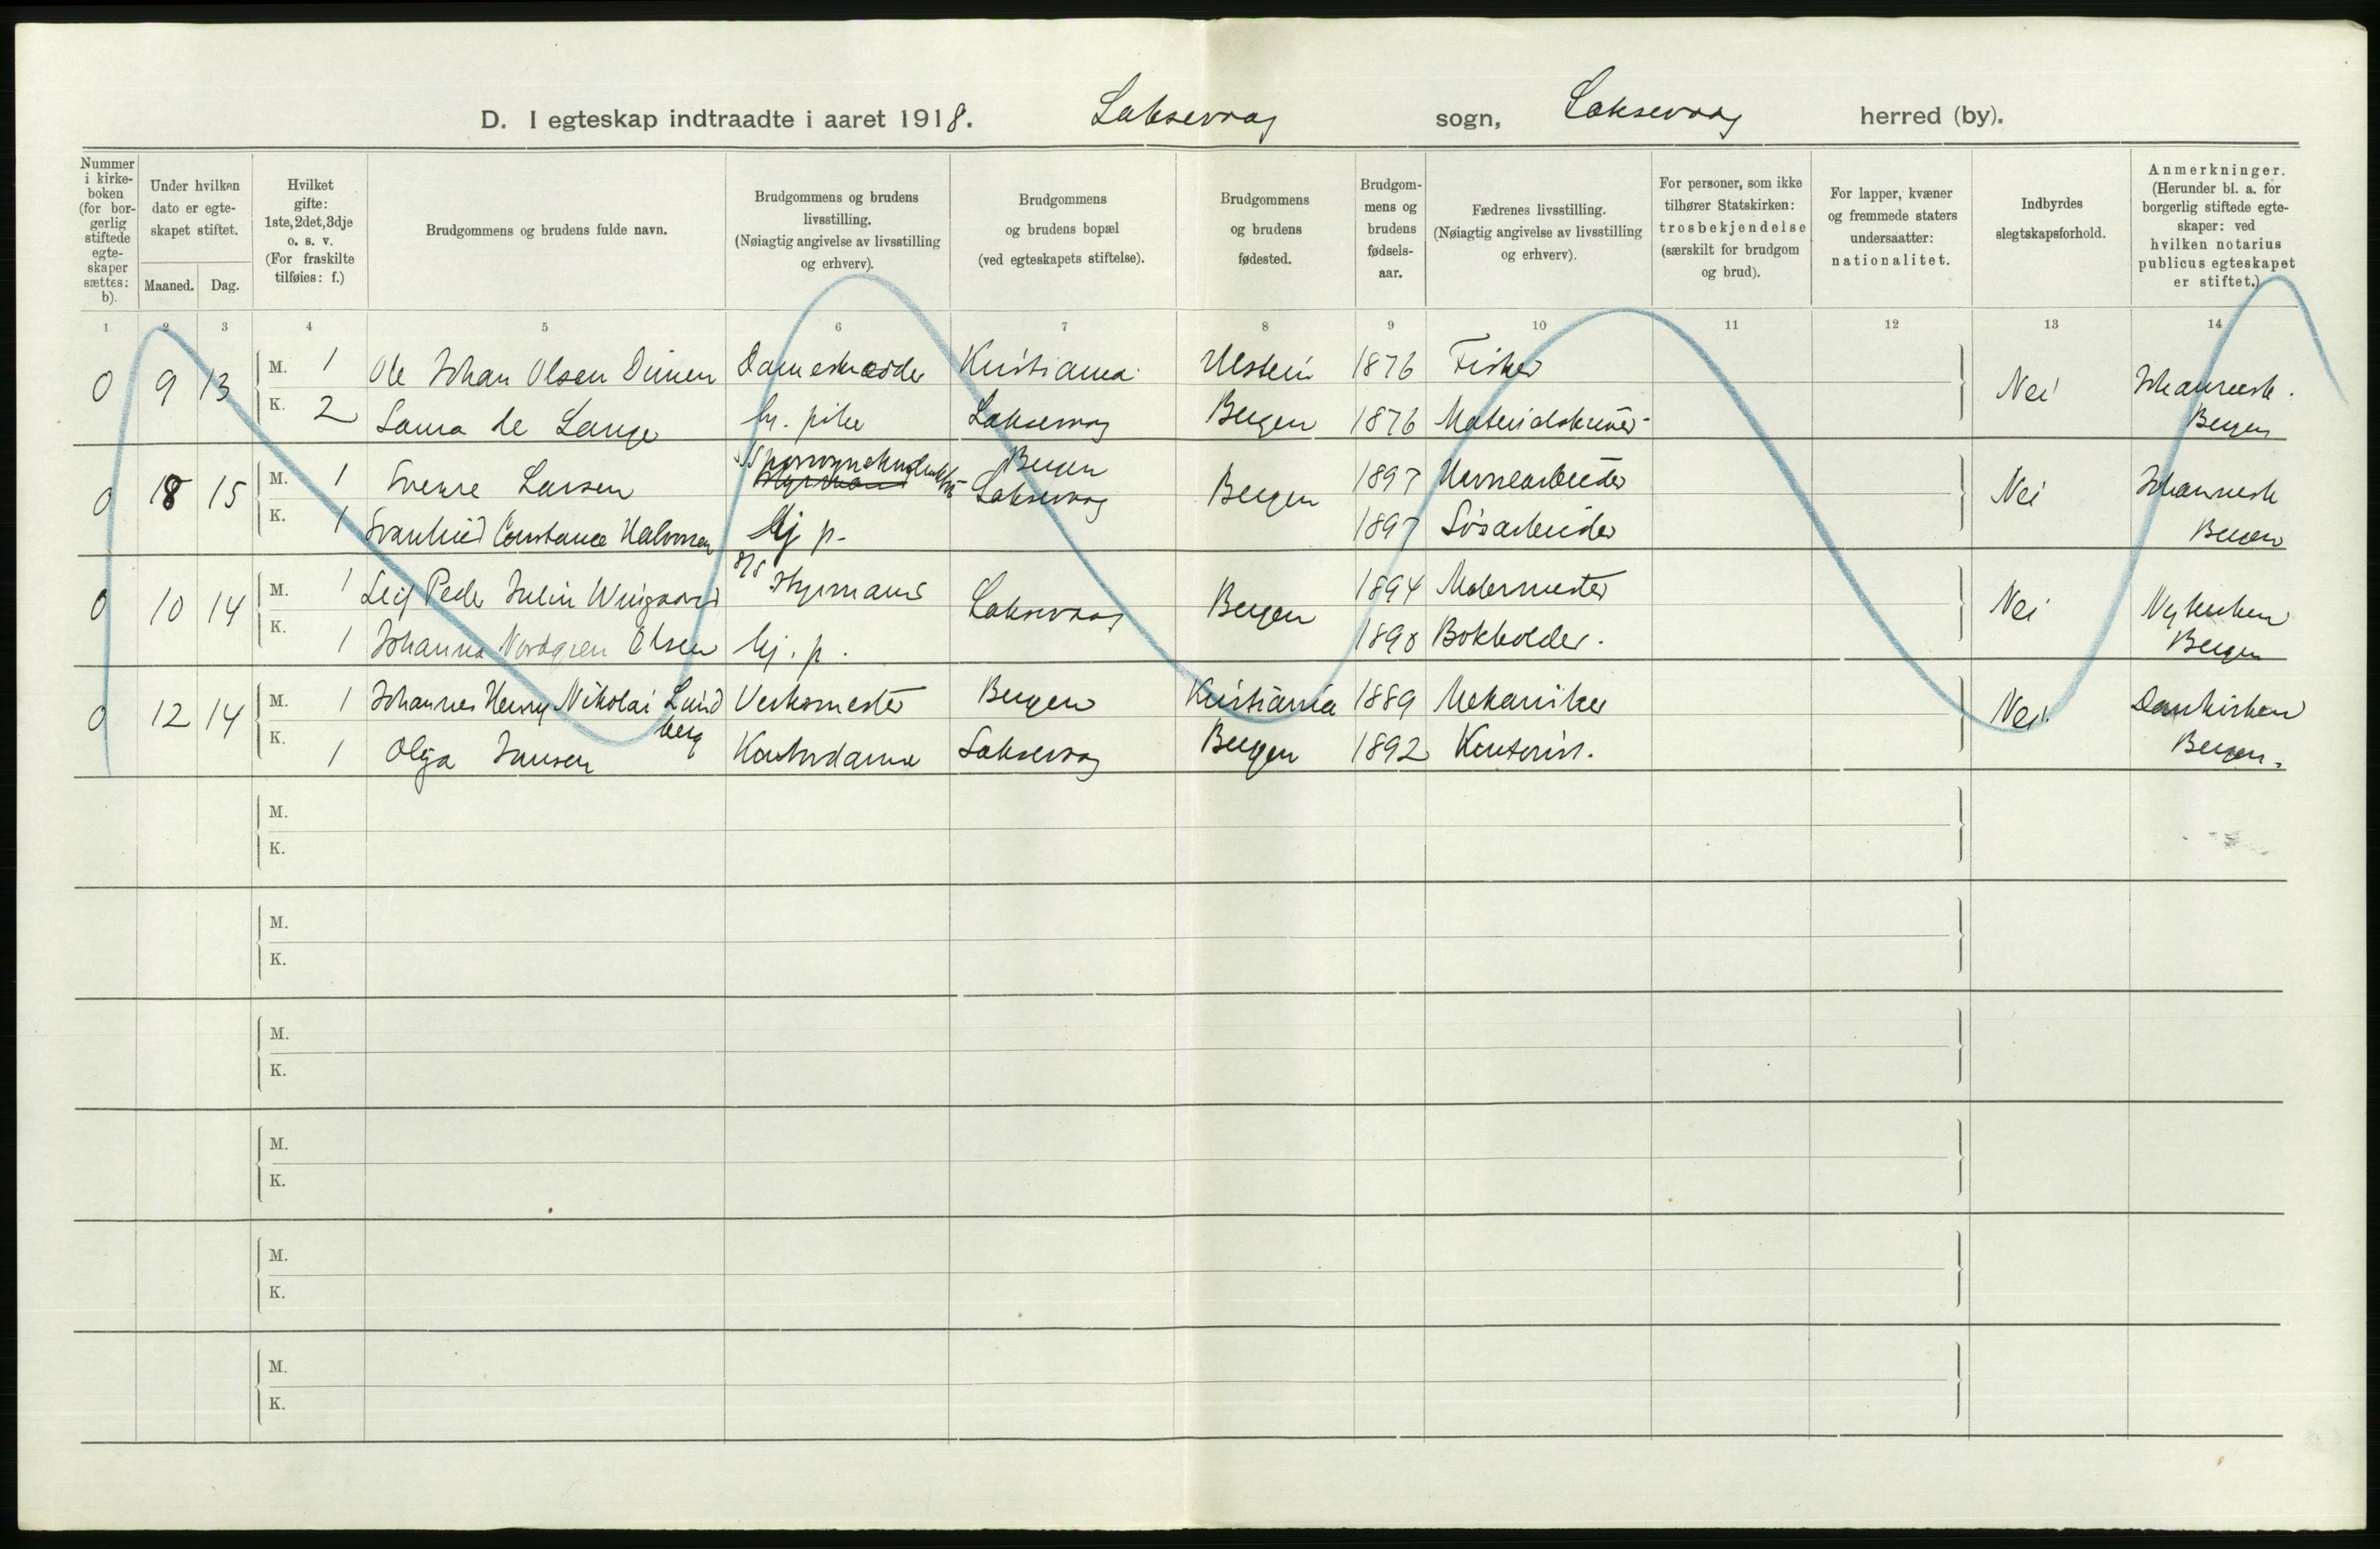 D. I egteskap indtraadte i aaret 1918. Laksevaag sogn, Laksevaag herred (by).
Nummer i kirke-boken (for bor-gerlig stiftede egte-skaper sættes: b).
Under hvilken dato er egte-skapet stiftet.
Maaned. Dag.
Hvilket gifte: 1ste, 2det, 3dje o. s. v. (For fraskilte tilføies: f.)
Brudgommens og brudens fulde navn.
Brudgommens og brudens livsstilling. (Nøiagtig angivelse av livsstilling og erhverv).
Brudgommens og brudens bopæl (ved egteskapets stiftelse).
Brudgommens og brudens fødested.
Brudgom-mens og brudens fødsels-aar.
Fædrenes livsstilling. (Nøiagtig angivelse av livsstilling og erhverv).
For personer, som ikke tilhører Statskirken: trosbekjendelse (særskilt for brudgom og brud).
For lapper, kvæner og fremmede staters undersaatter: nationalitet.
Indbyrdes slegtskapsforhold.
Anmerkninger. (Herunder bl. a. for borgerlig stiftede egte-skaper: ved hvilken notarius publicus egteskapet er stiftet.)
1 2 3 4 5 6 7 8 9 10 11 12 13 14
0 9 13 M. 1 Ole Johan Olsen Dimen Dameskrædder Kristiania Ulstein 1876 Fisker Nei Johannesk.
K. 2 Laura de Lange hj. pike Laksevaag Bergen 1876 Materialskriver Bergen
0 18 15 M. 1 Sverre Larsen Sporvognskonduktør Bergen Laksevaag Bergen 1897 Havnearbeider Nei Johannesk
K. 1 Svanhild Constance Halvorsen hj p. 1897 Løsarbeider Bergen
0 10 14 M. 1 Leif Peder Julin Wiingaard Styrmand Laksevaag Bergen 1894 Malermester Nei Nykirken
K. 1 Johanna Nordgren Olsen hj. p. 1890 Bokholder. Bergen
0 12 14 M. 1 Johannes Henry Nikolai Lundberg Verksmester Bergen Kristiania 1889 Mekaniker Nei Domkirken
K. 1 Olga Jansen Kontordame Laksevaag Bergen 1892 Kontorist. Bergen.
M.
K.
M.
K.
M.
K.
M.
K.
M.
K.
M.
K.